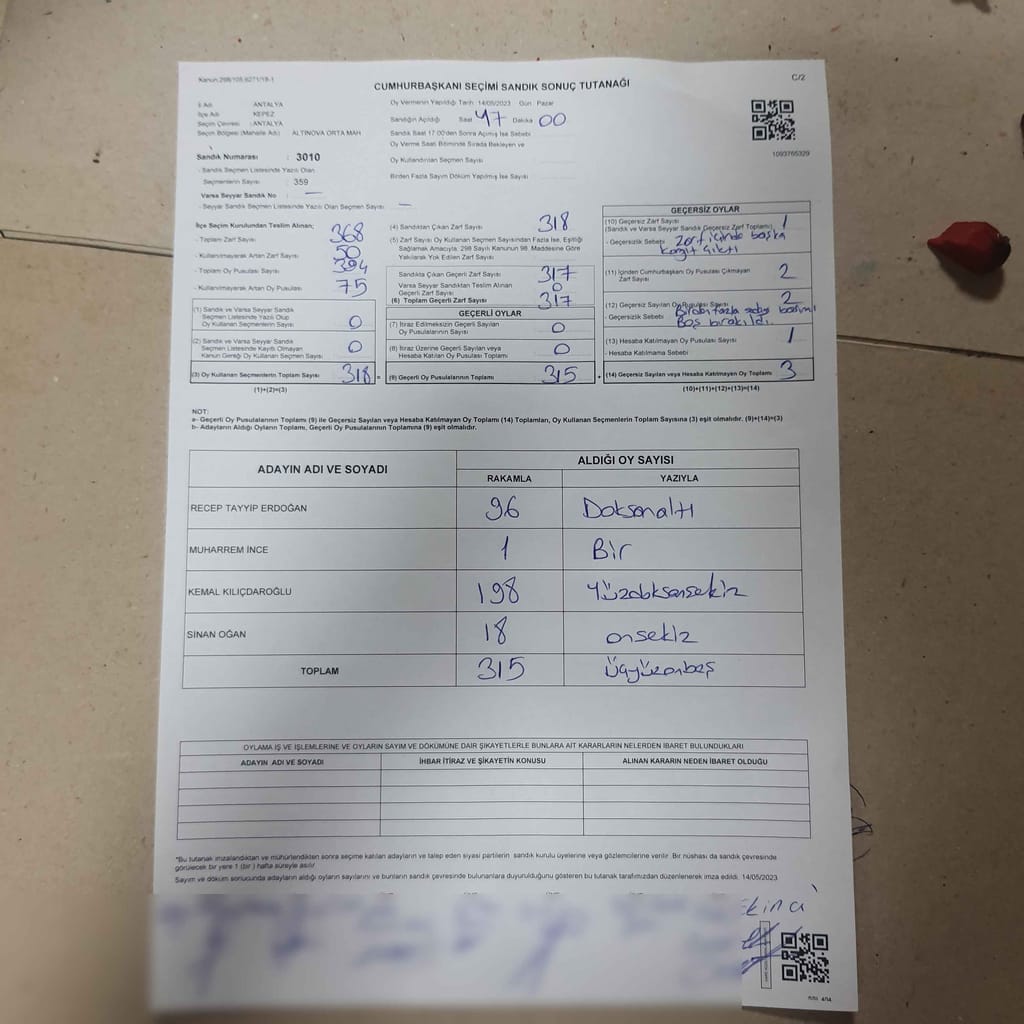 Kanun:298/105,6271/18-1
C/2
CUMHURBAŞKANI SEÇİMİ SANDIK SONUÇ TUTANAĞI
İl Adı : ANTALYA
İlçe Adı : KEPEZ
Seçim Çevresi : ANTALYA
Seçim Bölgesi (Mahalle Adı) : ALTINOVA ORTA MAH
Sandık Numarası : 3010
- Sandık Seçmen Listesinde Yazılı Olan
Seçmenlerin Sayısı : 359
Varsa Seyyar Sandık No : —
- Seyyar Sandık Seçmen Listesinde Yazılı Olan Seçmen Sayısı : —
Oy Vermenin Yapıldığı Tarih 14/05/2023 Gün : Pazar
Sandığın Açıldığı Saat 17 Dakika 00
Sandık Saat 17.00'den Sonra Açılmış İse Sebebi
Oy Verme Saati Bitiminde Sırada Bekleyen ve
Oy Kullandırılan Seçmen Sayısı
Birden Fazla Sayım Döküm Yapılmış İse Sayısı
1093765329
İlçe Seçim Kurulundan Teslim Alınan;
- Toplam Zarf Sayısı 368
- Kullanılmayarak Artan Zarf Sayısı 50
- Toplam Oy Pusulası Sayısı 394
- Kullanılmayarak Artan Oy Pusulası 75
(1) Sandık ve Varsa Seyyar Sandık
Seçmen Listesinde Yazılı Olup
Oy Kullanan Seçmenlerin Sayısı 0
(2) Sandık ve Varsa Seyyar Sandık
Seçmen Listesinde Kayıtlı Olmayan
Kanun Gereği Oy Kullanan Seçmen Sayısı 0
(3) Oy Kullanan Seçmenlerin Toplam Sayısı 318 =
(1)+(2)=(3)
(4) Sandıktan Çıkan Zarf Sayısı 318
(5) Zarf Sayısı Oy Kullanan Seçmen Sayısından Fazla İse, Eşitliği
Sağlamak Amacıyla, 298 Sayılı Kanunun 98. Maddesine Göre
Yakılarak Yok Edilen Zarf Sayısı
Sandıkta Çıkan Geçerli Zarf Sayısı 317
Varsa Seyyar Sandıktan Teslim Alınan
Geçerli Zarf Sayısı 0
(6) Toplam Geçerli Zarf Sayısı 317
GEÇERLİ OYLAR
(7) İtiraz Edilmeksizin Geçerli Sayılan
Oy Pusulalarının Sayısı 0
(8) İtiraz Üzerine Geçerli Sayılan veya
Hesaba Katılan Oy Pusulası Toplamı 0
(9) Geçerli Oy Pusulalarının Toplamı 315 +
GEÇERSİZ OYLAR
(10) Geçersiz Zarf Sayısı
(Sandık ve Varsa Seyyar Sandık Geçersiz Zarf Toplamı) 1
- Geçersizlik Sebebi Zarf içinde başka
kağıt çıktı
(11) İçinden Cumhurbaşkanı Oy Pusulası Çıkmayan
Zarf Sayısı 2
(12) Geçersiz Sayılan Oy Pusulası Sayısı 2
- Geçersizlik Sebebi Birden fazla
Boş bırakıldı.
(13) Hesaba Katılmayan Oy Pusulası Sayısı 1
- Hesaba Katılmama Sebebi
(14) Geçersiz Sayılan veya Hesaba Katılmayan Oy Toplamı 3
(10)+(11)+(12)+(13)=(14)
NOT:
a- Geçerli Oy Pusulalarının Toplamı (9) ile Geçersiz Sayılan veya Hesaba Katılmayan Oy Toplamı (14) Toplamları, Oy Kullanan Seçmenlerin Toplam Sayısına (3) eşit olmalıdır. (9)+(14)=(3)
b- Adayların Aldığı Oyların Toplamı, Geçerli Oy Pusulalarının Toplamına (9) eşit olmalıdır.
ADAYIN ADI VE SOYADI ALDIĞI OY SAYISI
RAKAMLA YAZIYLA
RECEP TAYYİP ERDOĞAN 96 Doksanaltı
MUHARREM İNCE 1 Bir
KEMAL KILIÇDAROĞLU 198 Yüzdoksansekiz
SİNAN OĞAN 18 onsekiz
TOPLAM 315 üçyüzonbeş
OYLAMA İŞ VE İŞLEMLERİNE VE OYLARIN SAYIM VE DÖKÜMÜNE DAİR ŞİKAYETLERLE BUNLARA AİT KARARLARIN NELERDEN İBARET BULUNDUKLARI
ADAYIN ADI VE SOYADI İHBAR İTİRAZ VE ŞİKAYETİN KONUSU ALINAN KARARIN NEDEN İBARET OLDUĞU
*Bu tutanak imzalandıktan ve mühürlendikten sonra seçime katılan adayların ve talep eden siyasi partilerin sandık kurulu üyelerine veya gözlemcilerine verilir. Bir nüshası da sandık çevresinde
görülecek bir yere 1 (bir) hafta süreyle asılır.
Sayım ve döküm sonucunda adayların aldığı oyların sayılarını ve bunların sandık çevresinde bulunanlara duyurulduğunu gösteren bu tutanak tarafımızdan düzenlenerek imza edildi. 14/05/2023